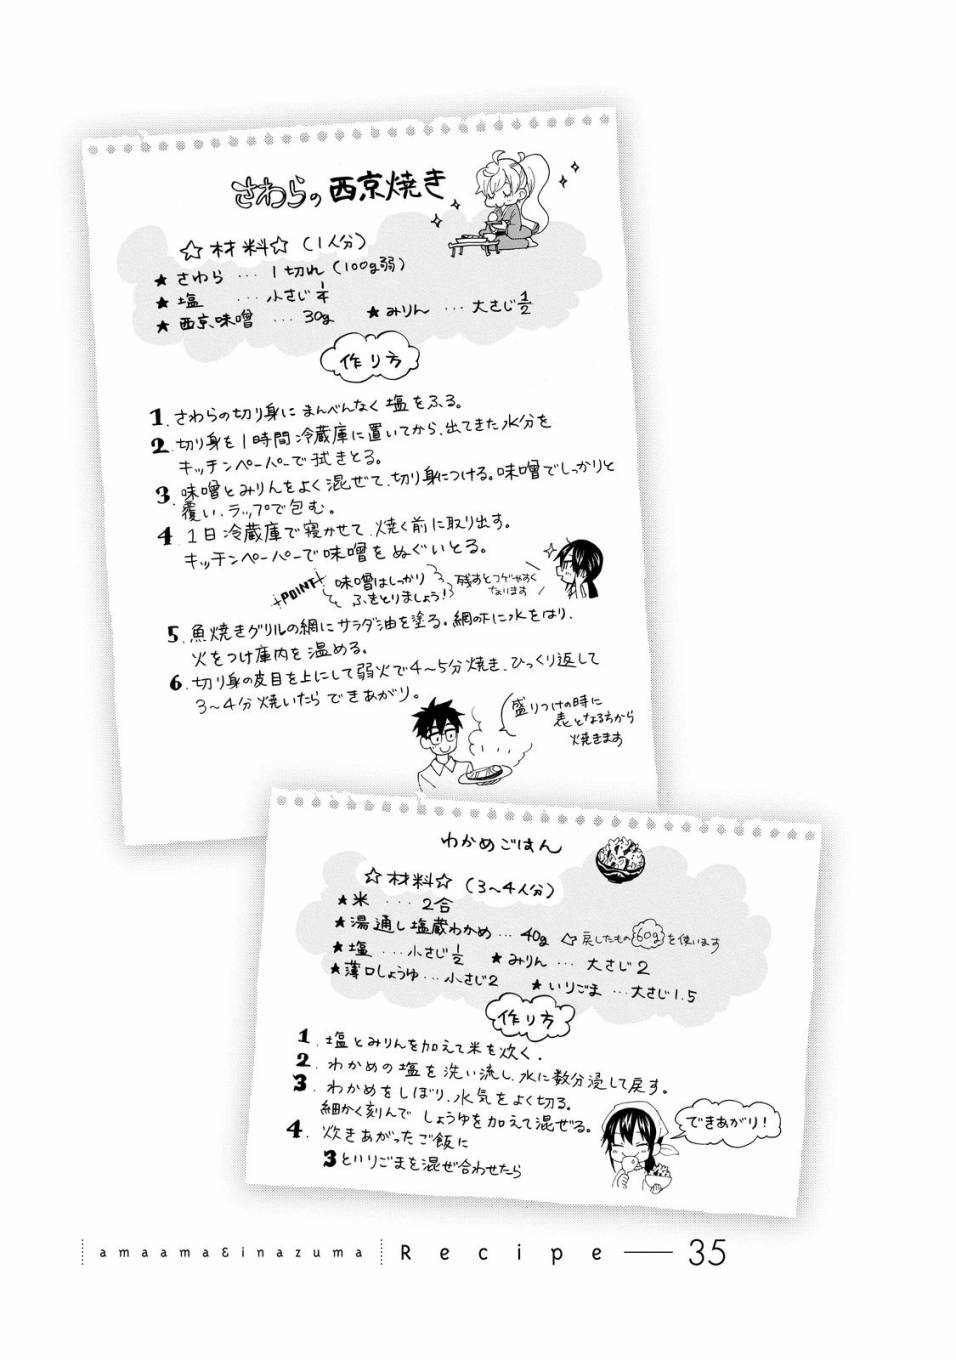 さわらの西京焼き
☆材料☆(1人分)
★さわら … 1切れ(100g弱)
★塩 … 小さじ1/4
★西京味噌 … 30g ★みりん … 大さじ1/2
作り方
1. さわらの切り身にまんべんなく塩をふる。
2. 切り身を1時間冷蔵庫に置いてから、出てきた水分を
キッチンペーパーで拭きとる。
3. 味噌とみりんをよく混ぜて、切り身につける。味噌でしっかりと
覆い、ラップで包む。
4. 1日冷蔵庫で寝かせて、焼く前に取り出す。
キッチンペーパーで味噌をぬぐいとる。
POINT
味噌はしっかり
ふきとりましょう!
残すとコゲやすく
なります
5. 魚焼きグリルの網にサラダ油を塗る。網の下に水をはり、
火をつけ庫内を温める。
6. 切り身の皮目を上にして弱火で4〜5分焼き、ひっくり返して
3〜4分焼いたらできあがり。
盛りつけの時に
表となる方から
焼きます
わかめごはん
☆材料☆(3〜4人分)
★米 … 2合
★湯通し塩蔵わかめ … 40g ⇦戻したもの60gを使います
★塩 … 小さじ1/2 ★みりん … 大さじ2
★薄口しょうゆ … 小さじ2 ★いりごま … 大さじ1.5
作り方
1. 塩とみりんを加えて米を炊く。
2. わかめの塩を洗い流し、水に数分浸して戻す。
3. わかめをしぼり、水気をよく切る。
細かく刻んで しょうゆを加えて混ぜる。
4. 炊きあがったご飯に
3といりごまを混ぜ合わせたら
できあがり!
amaama&inazuma Recipe — 35